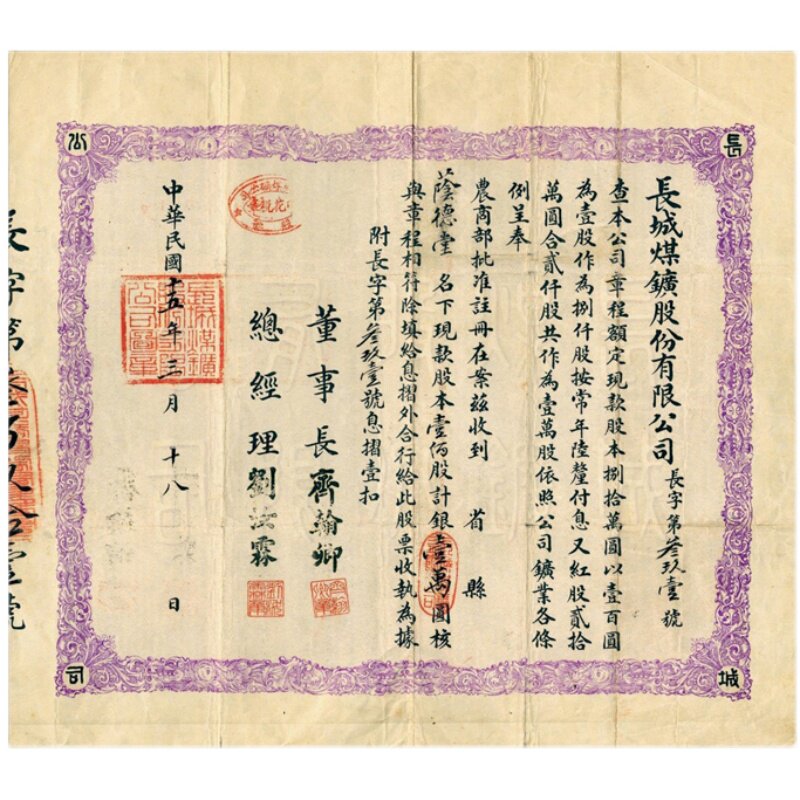 長城煤鑛股份有限公司 長字第叁玖壹號
查本公司章程額定現款股本捌拾萬圓以壹百圓
為壹股作為捌仟股按常年陸釐付息又紅股貳拾
萬圓合貳仟股共作為壹萬股依照公司鑛業各條
例呈奉
農商部批准註冊在案茲收到 省 縣
蔭德堂 名下現款股本壹佰股計銀壹萬圓核
與章程相符除填給息摺外合行給此股票收執為據
附長字第叁玖壹號息摺壹扣
董事長齊翰卿
總經理劉汝霖
中華民國十五年三月十八日
長字第叁百玖拾壹號
長
城
公
司